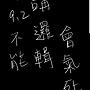 9.2不能
講邏輯
會氣死